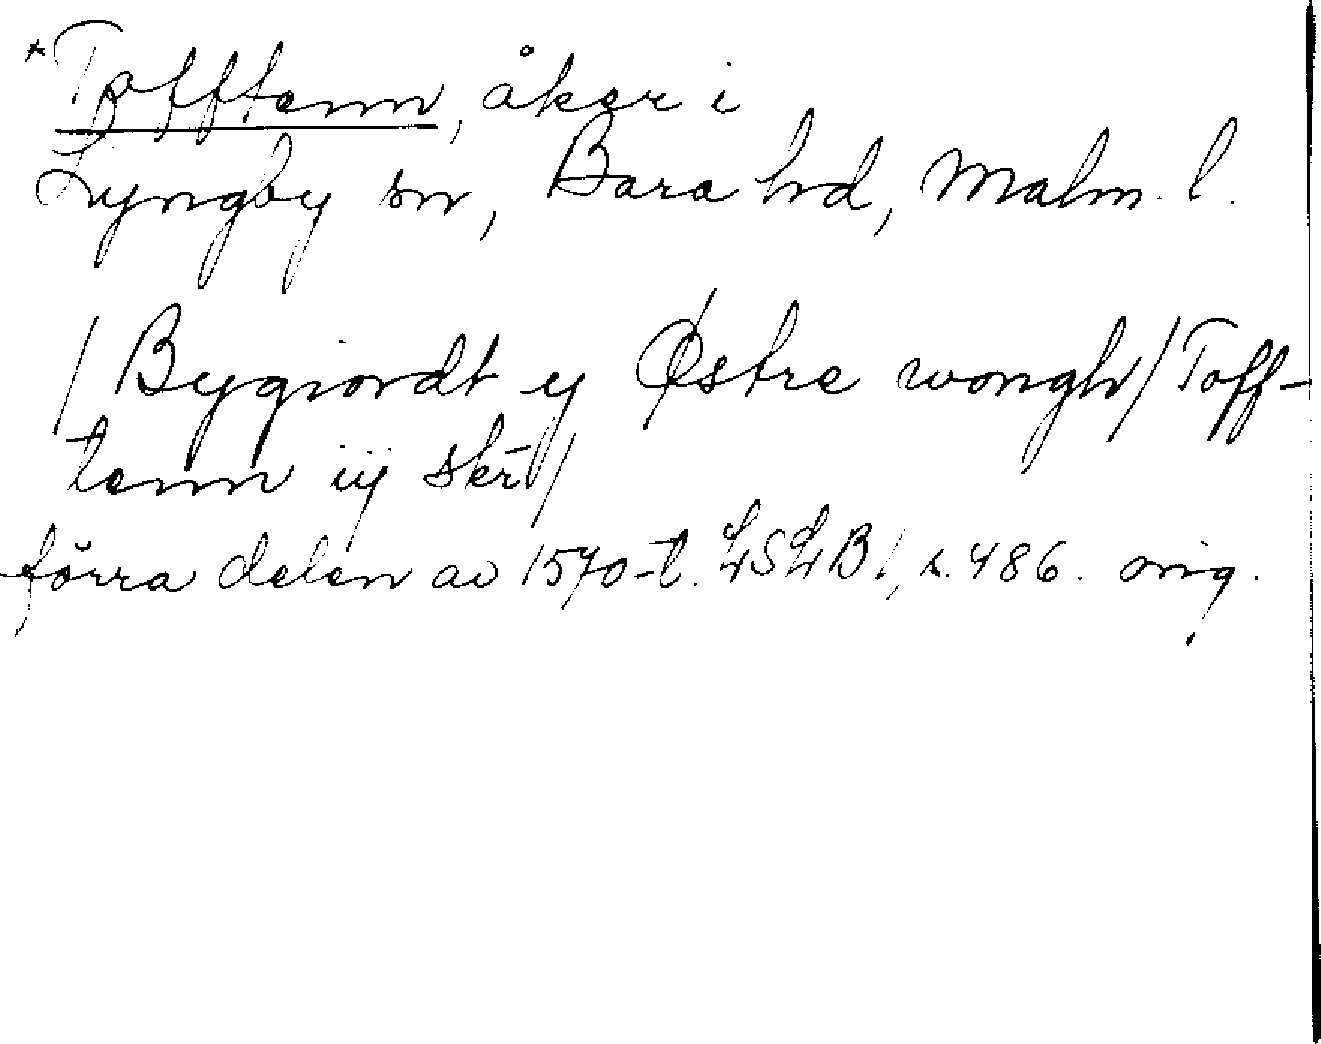 *Tofftenn, åker i
Lyngby sn, Bara hd, Malm. l.
/ Bygiordt ij Østre wongh / Toff-
tenn iij sker /
förra delen av 1570-t. LSLB 1, s. 486. orig.